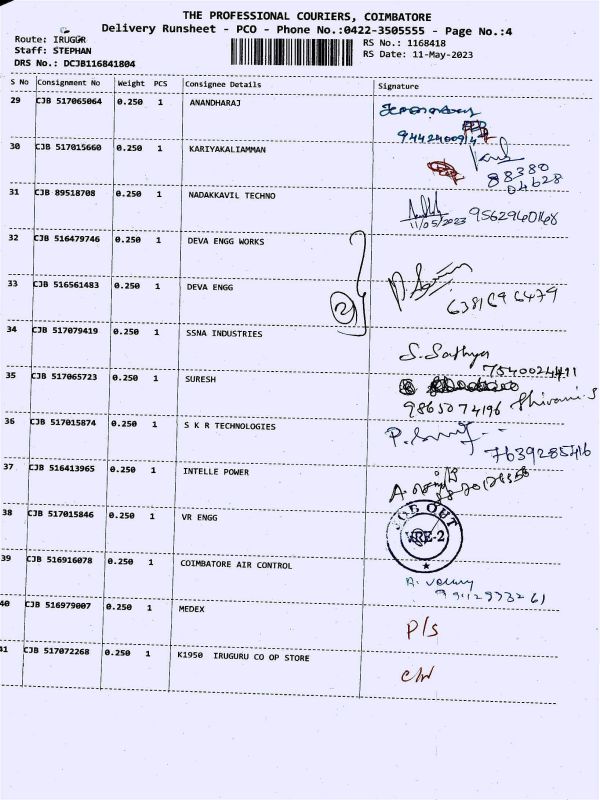 THE PROFESSIONAL COURIERS, COIMBATORE
Delivery Runsheet - PCO - Phone No.:0422-3505555 - Page No.:4
Route: IRUGUR
RS No.: 1168418
Staff: STEPHAN
RS Date: 11-May-2023
DRS No.: DCJB116841804
S No Consignment No Weight PCS Consignee Details Signature
29 CJB 517065064 0.250 1 ANANDHARAJ
30 CJB 517015660 0.250 1 KARIYAKALIAMMAN
88380
04628
31 CJB 89518708 0.250 1 NADAKKAVIL TECHNO
11/05/2023 9562960168
32 CJB 516479746 0.250 1 DEVA ENGG WORKS
33 CJB 516561483 0.250 1 DEVA ENGG
2
6381696479
34 CJB 517079419 0.250 1 SSNA INDUSTRIES
S. Sathya
7540024411
35 CJB 517065723 0.250 1 SURESH
9865074196 Shivani.S
36 CJB 517015874 0.250 1 S K R TECHNOLOGIES
7639285416
37 CJB 516413965 0.250 1 INTELLE POWER
38 CJB 517015846 0.250 1 VR ENGG
OUT
VRE-2
39 CJB 516916078 0.250 1 COIMBATORE AIR CONTROL
40 CJB 516979007 0.250 1 MEDEX
P/S
41 CJB 517072268 0.250 1 K1950 IRUGURU CO OP STORE